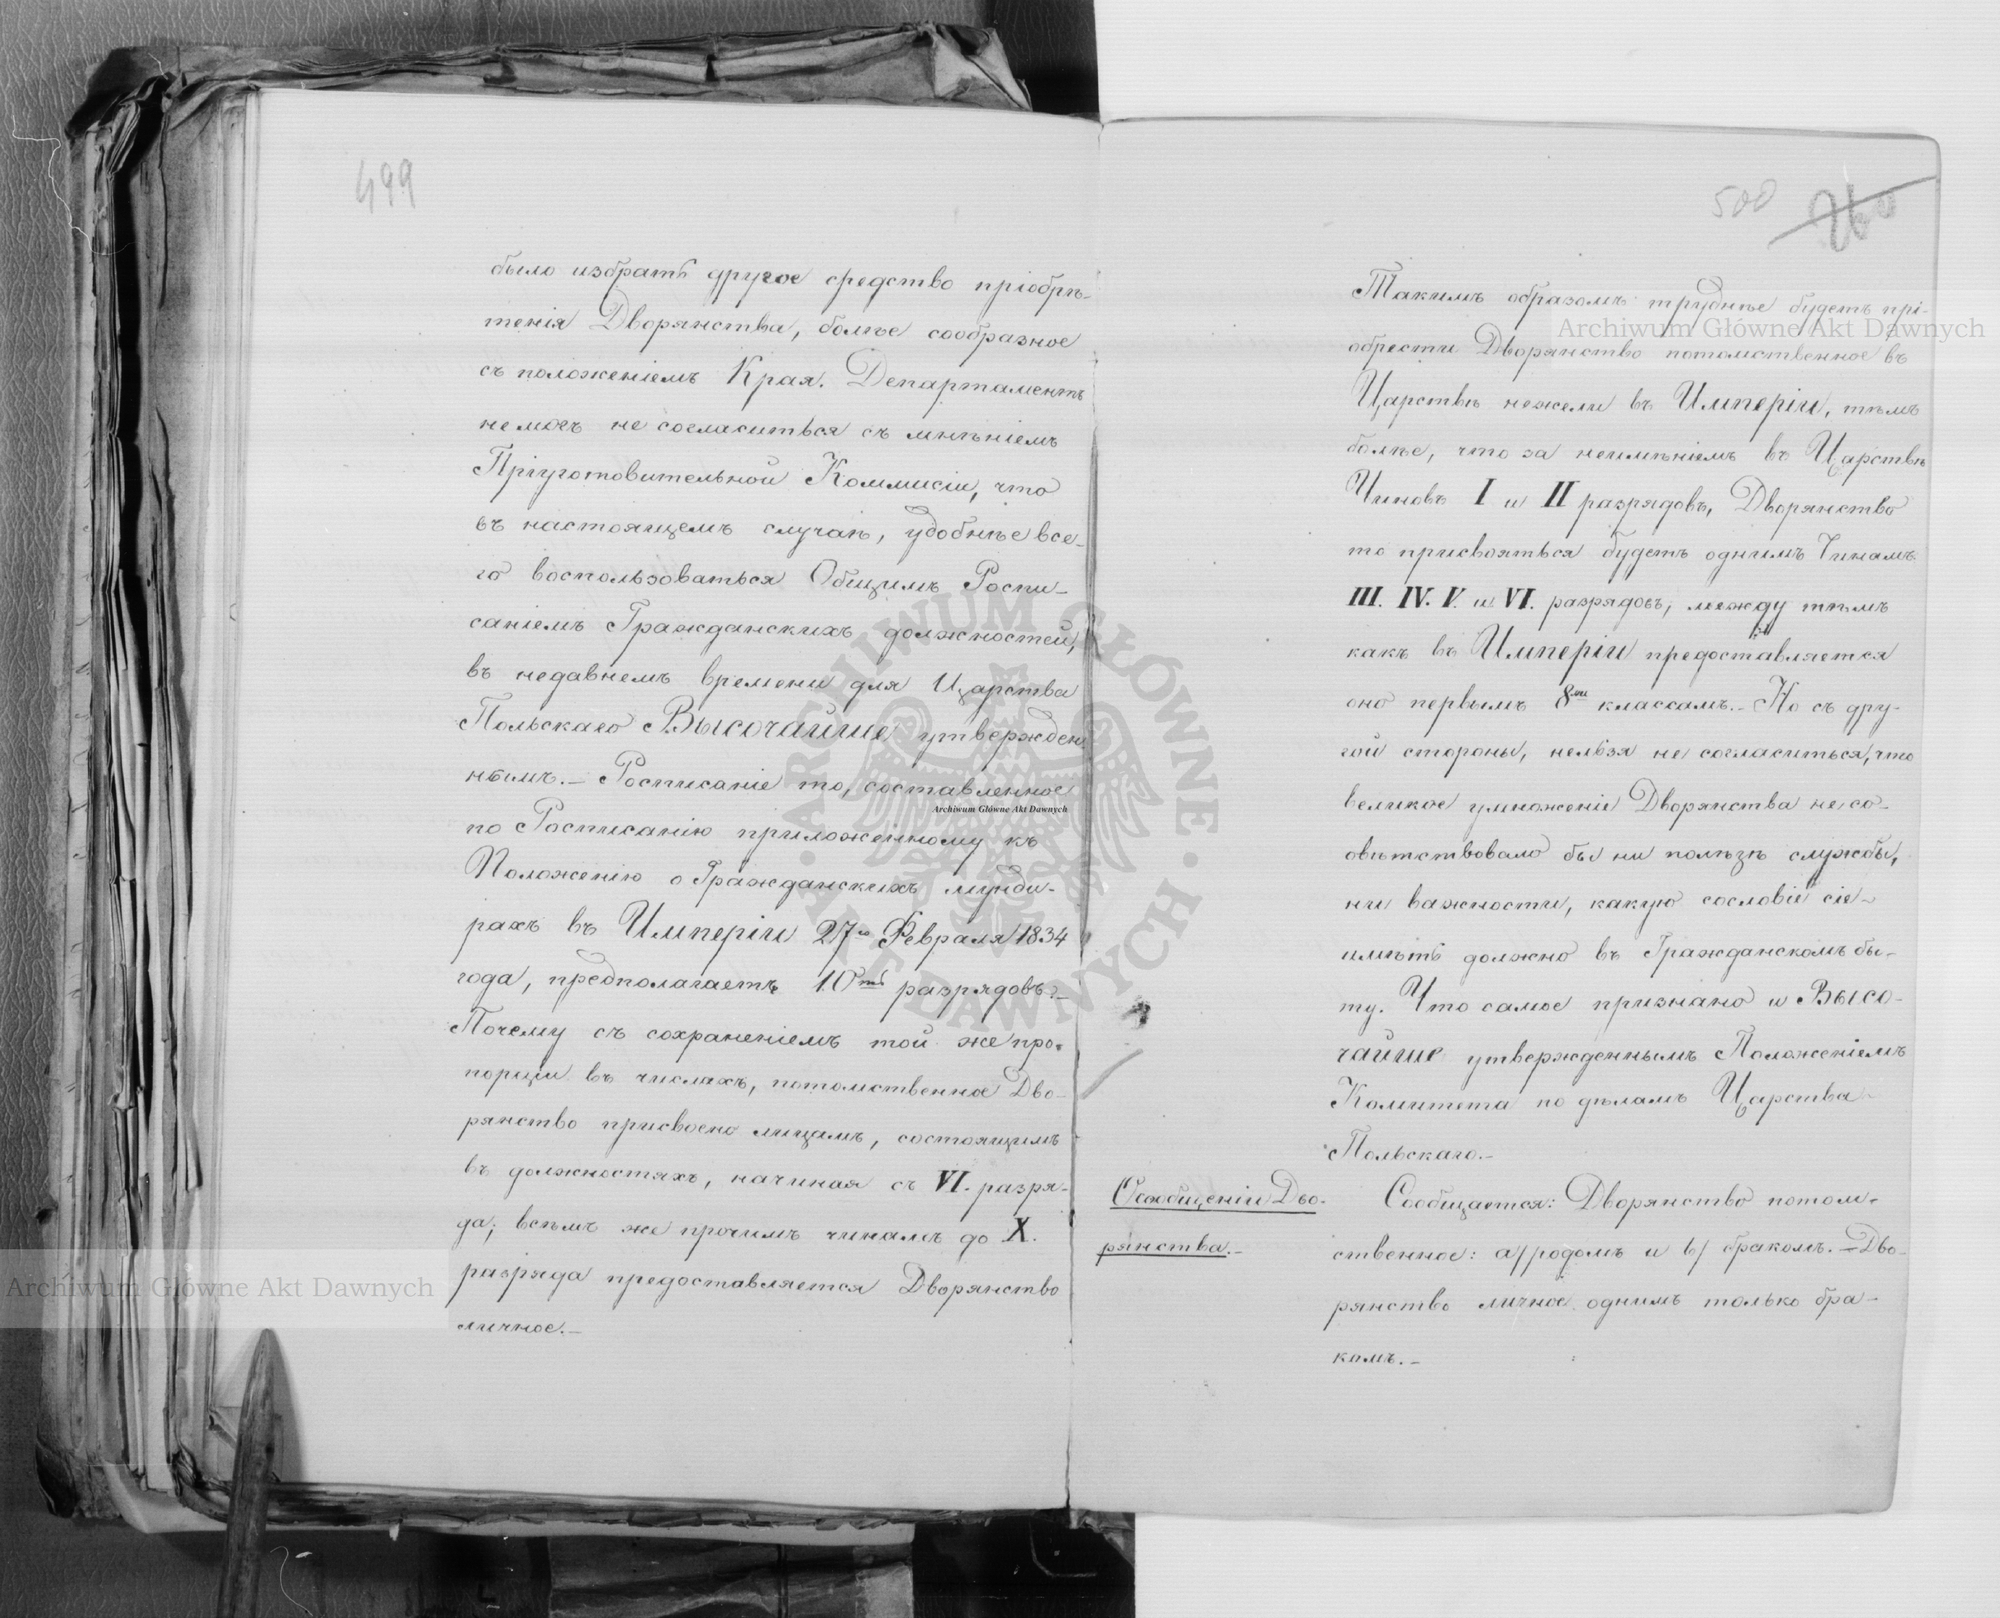 499
было избрать другое средство пріобрѣ-
тенія Дворянства, болѣе сообразное
съ положеніемъ Края. Департаментъ
не могъ не согласиться съ мнѣніемъ
Пріуготовительной Коммисіи, что
въ настоящемъ случаѣ, удобнѣе все-
го воспользоваться Общимъ Роспи-
саніемъ Гражданскихъ должностей,
въ недавнемъ времени для Царства
Польскаго Высочайше утвержден
нымъ.- Росписаніе то, составленное
по Росписанію приложенному къ
Положенію о Гражданскихъ мунди-
рахъ въ Имперіи 27го Февраля 1834
года, предполагаетъ 10ть разрядовъ.-
Почему съ сохраненіемъ той же про-
порціи въ числахъ, потомственное Дво-
рянство присвоено лицамъ, состоящимъ
въ должностяхъ, начиная съ VI. разря-
да; всѣмъ же прочимъ чинамъ до X.
разряда предоставляется Дворянство
личное.-
500 260
Такимъ образомъ труднѣе будетъ прі-
обрести Дворянство потомственное въ
Царствѣ нежели въ Имперіи, тѣмъ
болѣе, что за неимѣніемъ въ Царствѣ
Чиновъ I и II разрядовъ, Дворянство
то присвояться будетъ однимъ Чинамъ
III. IV. V. и VI. разрядовъ, между тѣмъ
какъ въ Имперіи предоставляется
оно первымъ 8ми классамъ.- Но съ дру-
гой стороны, нельзя не согласиться, что
великое умноженіе Дворянства не со-
овѣтствовало бы ни пользѣ службы,
ни важности, какую сословіе сіе
имѣть должно въ Гражданскомъ бы-
ту. Что самое признано и Высо-
чайше утвержденнымъ Положеніемъ
Комитета по дѣламъ Царства
Польскаго.-
О сообщеніи Дво-
рянства.-
Сообщается: Дворянство потом-
ственное: а/ родомъ и b/ бракомъ. - Дво-
рянство личное однимъ только бра-
комъ.-
Archiwum Główne Akt Dawnych
Archiwum Główne Akt Dawnych
Archiwum Główne Akt Dawnych
ARCHIWUM GŁÓWNE · AKT DAWNYCH ·